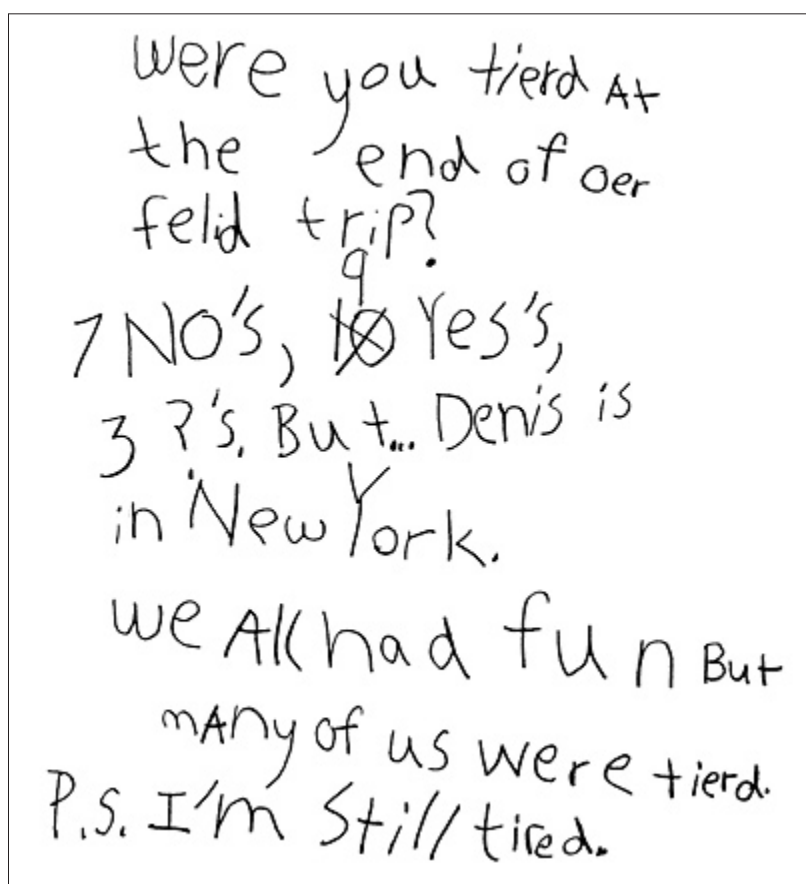 were you tierd At
the end of oer
felid trip?
7 NO's, 9 Yes's,
3 ?'s. But... Denis is
in New York.
we All had fun But
mAny of us were tierd.
P.S. I'm Still tired.